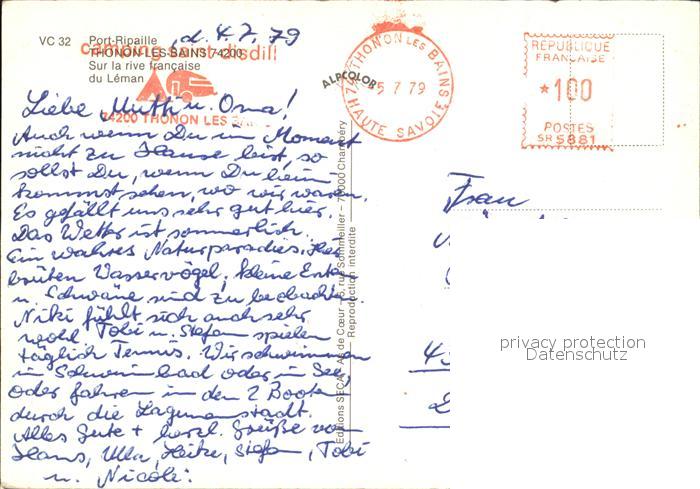 VC 32 Port-Ripaille
THONON LES BAINS 74200
Sur la rive française
du Léman
camping saint disdill
74200 THONON LES
d. 4.7.79
Liebe Mutti u. Oma!
Auch wenn Du im Moment
nicht zu Hause bist, so
sollst Du, wenn Du heim
kommst sehen, wo wir waren.
Es gefällt uns sehr gut hier.
Das Wetter ist sommerlich.
Ein wahres Naturparadies. Hier
brüten Wasservögel, kleine Enten
u. Schwäne sind zu beobachten.
Niki fühlt sich auch sehr
wohl. Tobi u. Stefan spielen
täglich Tennis. Wir schwimmen
im Schwimmbad oder im See,
oder fahren in den 2 Booten
durch die Lagunenstadt.
Alles Gute + herzl. Grüße von
Hans, Ulla, Heike, Stefan, Tobi
u. Nicole.
ALPCOLOR
74 THONON LES BAINS
5 7 79
HAUTE SAVOIE
RÉPUBLIQUE
FRANÇAISE
*100
POSTES
SR 5881
rue Sommeiller – 73000 Chambéry
Reproduction interdite
Frau
privacy protection
Datenschutz